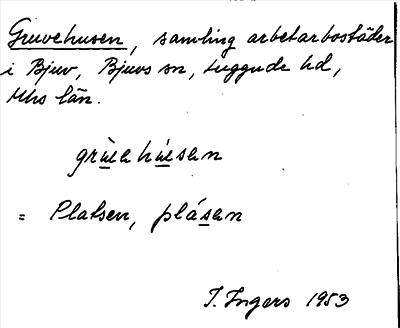 Gruvehusen, samling arbetarbostäder
i Bjuv, Bjuvs sn, Luggude hd,
Mhs län.
grùehúesan
= Platsen, plásan
I. Ingers 1953